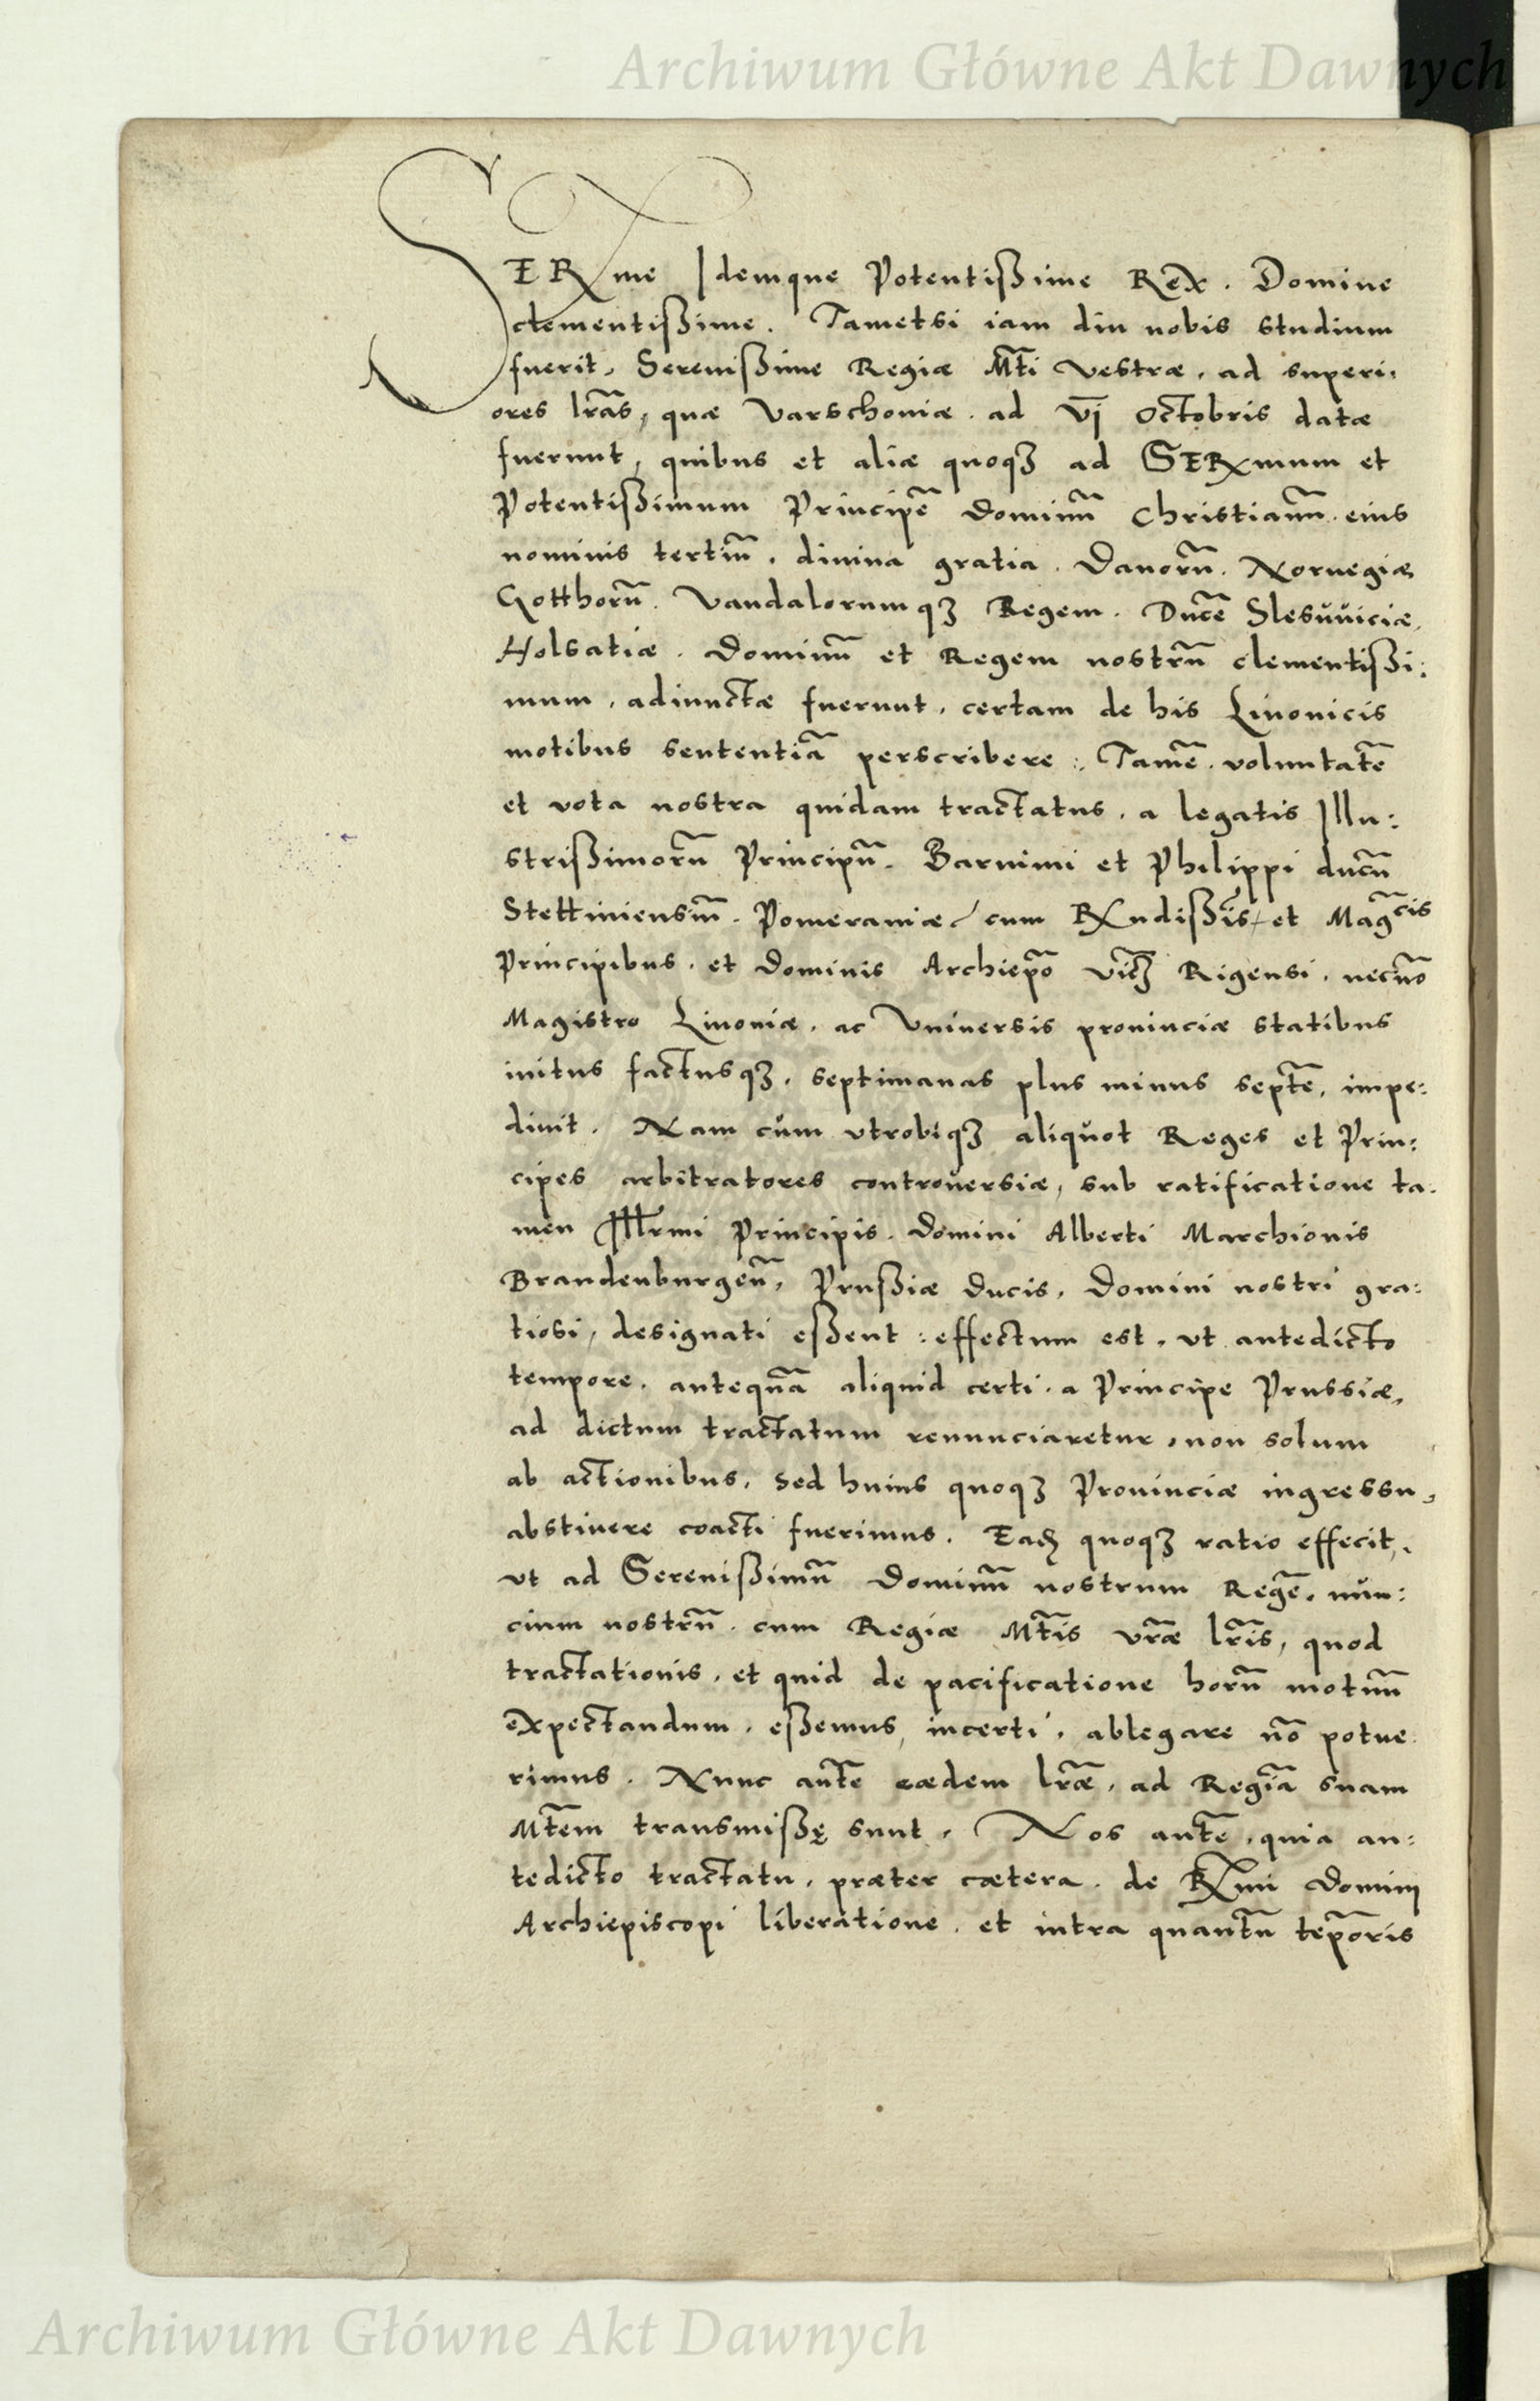 Archiwum Główne Akt Dawnych
SERme Idemque Potentißime Rex. Domine
clementißime. Tametsi iam diu nobis studium
fuerit, Serenißime Regiæ Mti Vestræ, ad superi,
ores lras, quæ Varschoniæ. ad vj Octobris datæ
fuerunt, quibus et aliæ quoqȝ ad SERmum et
Potentißimum Principe Dominu Christianu. eius
nominis tertiu. diuina gratia. Danoru. Noruegiæ
Gotthoru. Vandalorumqȝ Regem. Duce Slesuuiciæ,
Holsatiæ. Dominu et Regem nostru clementißi:
mum, adiunctæ fuerunt, certam de his Liuonicis
motibus sententia perscribere: Tame. voluntate
et vota nostra quidam tractatus, a legatis Illu:
strißimoru Principu. Barnimi et Philippi ducu
Stettiniensiu. Pomeraniæ, cum Rxndißis, et Magcis
Principibus. et Dominis Archiepo Vicȝ Rigensi, necno
Magistro Liuoniæ, ac Vniuersis prouinciæ statibus
initus factusqȝ, septimanas plus minus septe, impe:
diuit. Nam cùm vtrobiqȝ aliquot Reges et Prin:
cipes arbitratores controuersiæ, sub ratificatione ta.
men Illrmi Principis. Domini Alberti Marchionis
Brandenburgen, Prußiæ Ducis, Domini nostri gra:
tiosi, designati eßent: effectum est, vt antedicto
tempore. antequa aliquid certi. a Principe Prussiæ,
ad dictum tractatum renunciaretur, non solum
ab actionibus, sed huius quoqȝ Prouinciæ ingressu,
abstinere coacti fuerimus. Eadȝ quoqȝ ratio effecit,
vt ad Serenißimu Dominu nostrum Rege, nun:
cium nostru. cum Regiæ Mtis vræ lris, quod
tractationis, et quid de pacificatione horu motuu
expectandum, eßemus, incerti, ablegare no potue.
rimus. Nunc aute eædem lræ, ad Regia suam
Mtem transmißę sunt, Nos aute, quia an:
tedicto tractatu, præter cætera. de Rxmi Domini
Archiepiscopi liberatione, et intra quantu teporis
Archiwum Główne Akt Dawnych